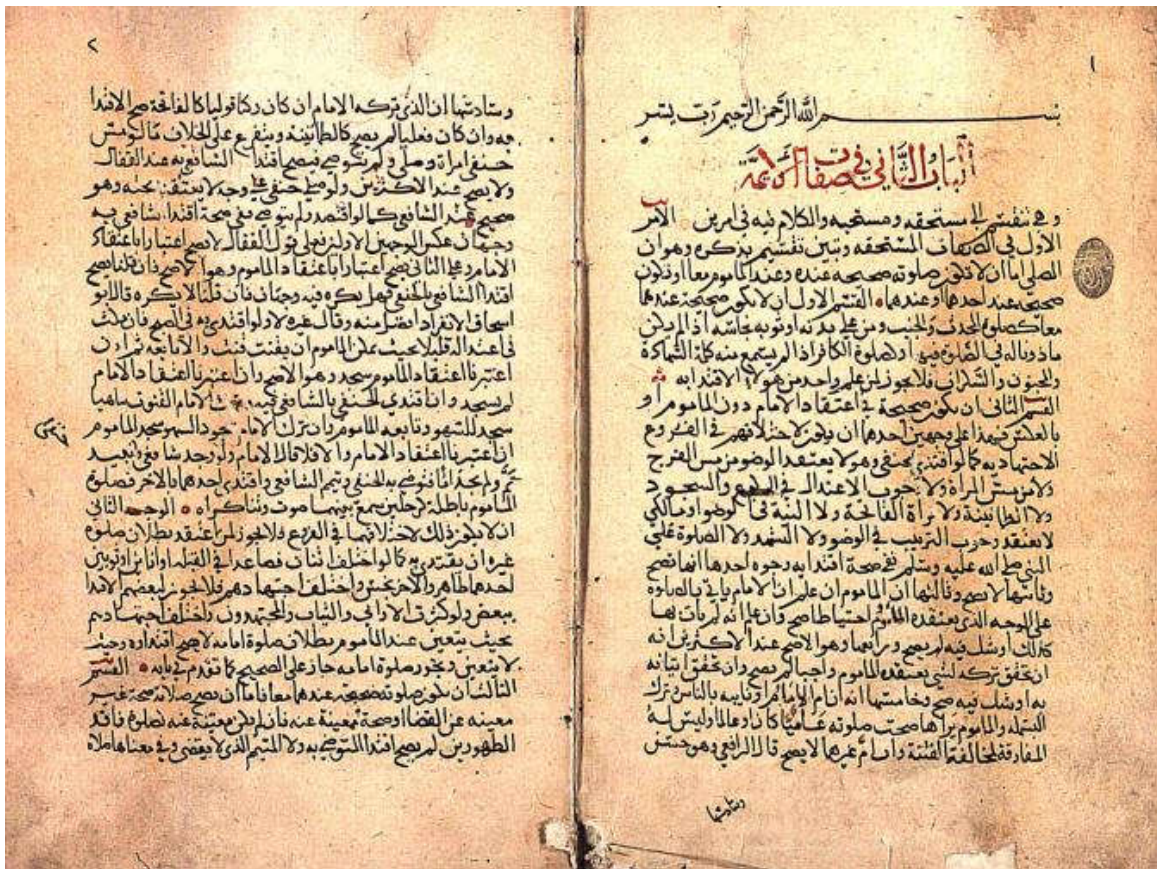 ١
بسم الله الرحمن الرحيم رب يسر
الباب الثاني في صفات الأئمة
وهي تنقسم إلى مستحقه ومستحبه والكلام فيه في امرين الأمر
الأول في الصفات المستحقه وتبين تقسيم يذكره وهو ان
المصلي اما ان لا تكون صلوته صحيحه عنده وعند الماموم معا او تكون
صحيحه عند احدهما او عندهما القسم الاول ان لا تكون صحيحة عندهما
معا كصلوة المحدث والجنب ومن على بدنه او ثوبه نجاسه اذا لم يكن
ماذونا له في الصلوة فيها او لصلوة الكافر اذا لم يسمع منه كلمة الشهادة
والمجنون والسكران فلا يجوز لمن علم واحد من هولاء الاقتدا به
القسم الثاني ان تكون صحيحة في اعتقاد الامام دون الماموم او
بالعكس فهذا على وجهين احدهما ان يكون لاختلافهم في الفروع
الاجتهاديه كما لو اقتدى بحنفي وهو لا يعتقد الوضو من مس الفرج
ولا من مس المراة ولا وجوب الاعتدال في الركوع والسجود
ولا الطمانينة ولا قراة الفاتحة ولا النية في الوضوء او مالكي
لا يعتقد وجوب الترتيب في الوضو ولا التشهد ولا الصلوة على
النبي صلى الله عليه وسلم ففي صحة اقتدا به وجوه احدها انها تصح
وثانيها لا تصح وثالثها ان الماموم ان علم ان الامام ياتي بالصلوة
على الوجه الذي يعتقده الماموم احتياطا صح وان علم انه لم يات بها
كذلك او شك فيه لم يصح ورابعها وهو الاصح عند الاكثرين انه
ان تحقق تركه لشي يعتقده الماموم واجبا لم يصح وان تحقق اتيانه
به او شك فيه صح وخامسها انه ان ام الامام او نايبه بالناس وترك
البسمله والماموم يراها صحت صلوته عاميا كان او عالما وليس له
المفارقة لمخالفة الفتنة وان ام غيرهما لا يصح قال الرافعي وهو حسن
وسادسها
٢
وسادسها ان الذي تركه الامام ان كان ركنا قوليا كالفاتحة صح الاقتدا
به وان كان فعليا لم يصح كالطمانينة ويتفرع على الخلاف ما لو مس
حنفي امراة وصلى ولم يتوضى فيصح اقتدا الشافعي به عند القفال
ولا يصح عند الاكثرين ولو صلى حنفي على وجه لا يعتقد صحته وهو
صحيح عند الشافعي كما لو افتصد ولم يتوضى ففي صحة اقتدا شافعي به
وجهان عكس الوجهين الاولين فعلى قول القفال لا يصح اعتبارا باعتقاد
الامام وعلى الثاني يصح اعتبارا باعتقاد الماموم وهو الاصح فان قلنا يصح
اقتدا الشافعي بالحنفي فهل يكره فيه وجهان فان قلنا لا يكره قال ابو
اسحاق الانفراد افضل منه وقال غيره لا ولو اقتدى به في الصبح فان مكث
في اعتداله قليلا بحيث يمكن الماموم ان يقنت قنت والا تابعه ثم ان
اعتبرنا اعتقاد الماموم سجد وهو الاصح وان اعتبرنا اعتقاد الامام
لم يسجد وان اقتدى الحنفي بالشافعي الامام القنوت ساهيا
سجد للسهو وتابعه الماموم وان ترك الامام سجود السهو سجد الماموم
ان اعتبرنا اعتقاد الامام والا فلا
الماموم باطلة كرجلين سمع بينهما صوت وتناكراه الوجه الثاني
ان لا يكون ذلك لاختلافهما في الفروع فلا يجوز لمن اعتقد بطلان صلوة
غيره ان يقتدي به كما لو اختلف اثنان فصاعدا في القبله او انايين او ثوبين
احدهما طاهر والاخر نجس واختلف اجتهادهم فلا يجوز لبعضهم الاقتدا
ببعض ولو كثرت الاواني والثياب والمجتهدون واختلف اجتهادهم
بحيث يتعين عند الماموم بطلان صلوة امامه لا يصح اقتداوه وحيث
لا يتعين ويجوز صلوة امامه جاز على الصحيح كما تقدم في بابه القسم
الثالث ان تكون صلوته صحيحة عندهما معا فاما ان تصح صلاته صحة غير
مغنيه عن القضا او صحة مغنية عنه فان لم تكن مغنية عنه كصلوة فاقد
الطهورين لم يصح اقتدا المتوضي به ولا المتيمم الذي لا يقضي وفي معناها صلاة